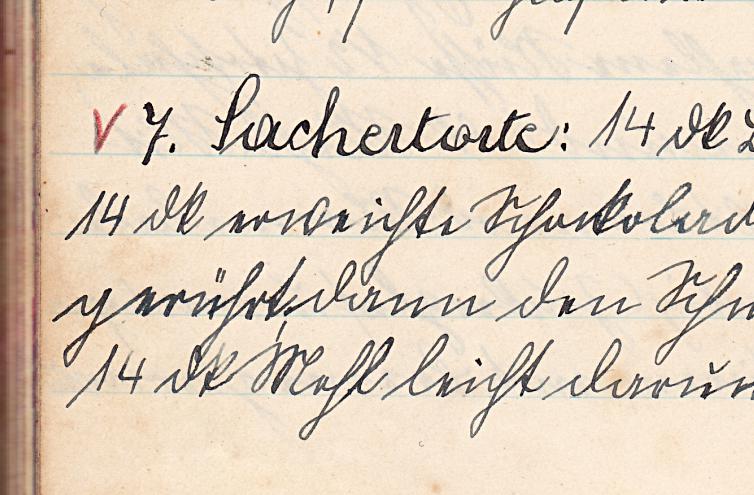 V 7. Sachertorte: 14 dk
14 dk erweichte Schokolad
gerührt, dann den Schn
14 dk Mehl leicht darun